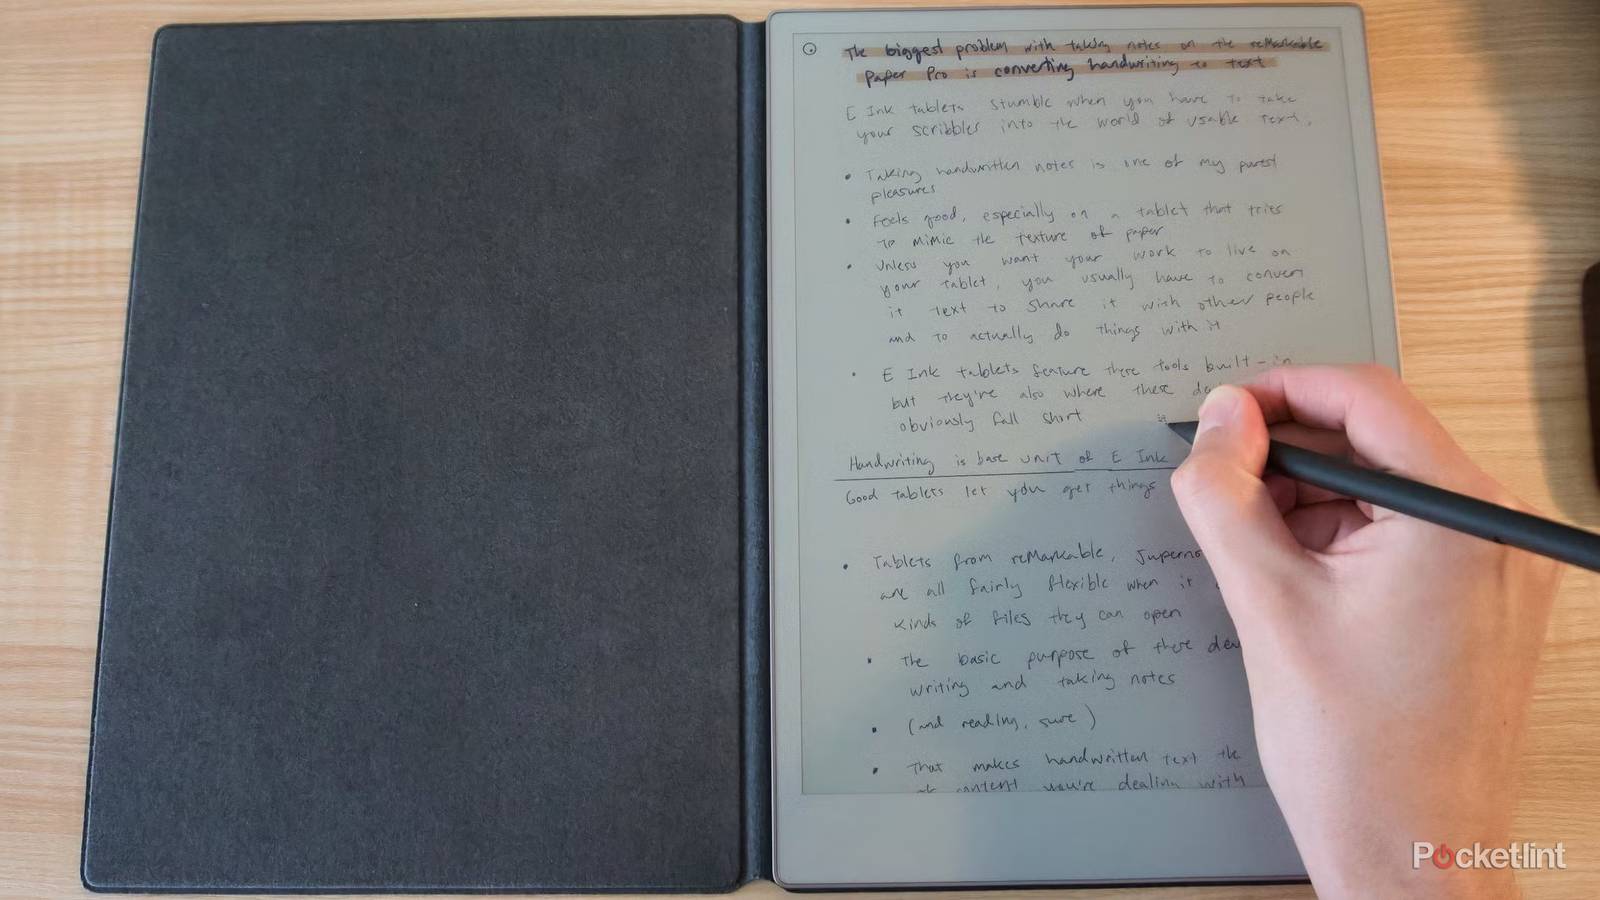 The biggest problem with taking notes on the reMarkable
Paper Pro is converting handwriting to text
E Ink tablets stumble when you have to take
your scribbles into the world of usable text.
• Taking handwritten notes is one of my purest
pleasures
• Feels good, especially on a tablet that tries
to mimic the texture of paper
• Unless you want your work to live on
your tablet, you usually have to convert
it text to share it with other people
and to actually do things with it
• E Ink tablets feature these tools built-in
but they're also where these de
obviously fall short
Handwriting is base unit of E Ink
Good tablets let you get things
• Tablets from reMarkable, Superno
are all fairly flexible when it
kinds of files they can open
• The basic purpose of these dev
writing and taking notes
• (and reading, sure)
• That makes handwritten text the
of content you're dealing with
Pocket-lint